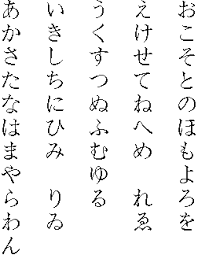 あかさたなはまやらわん
いきしちにひみ　りゐ
うくすつぬふむゆる
えけせてねへめ　れゑ
おこそとのほもよろを